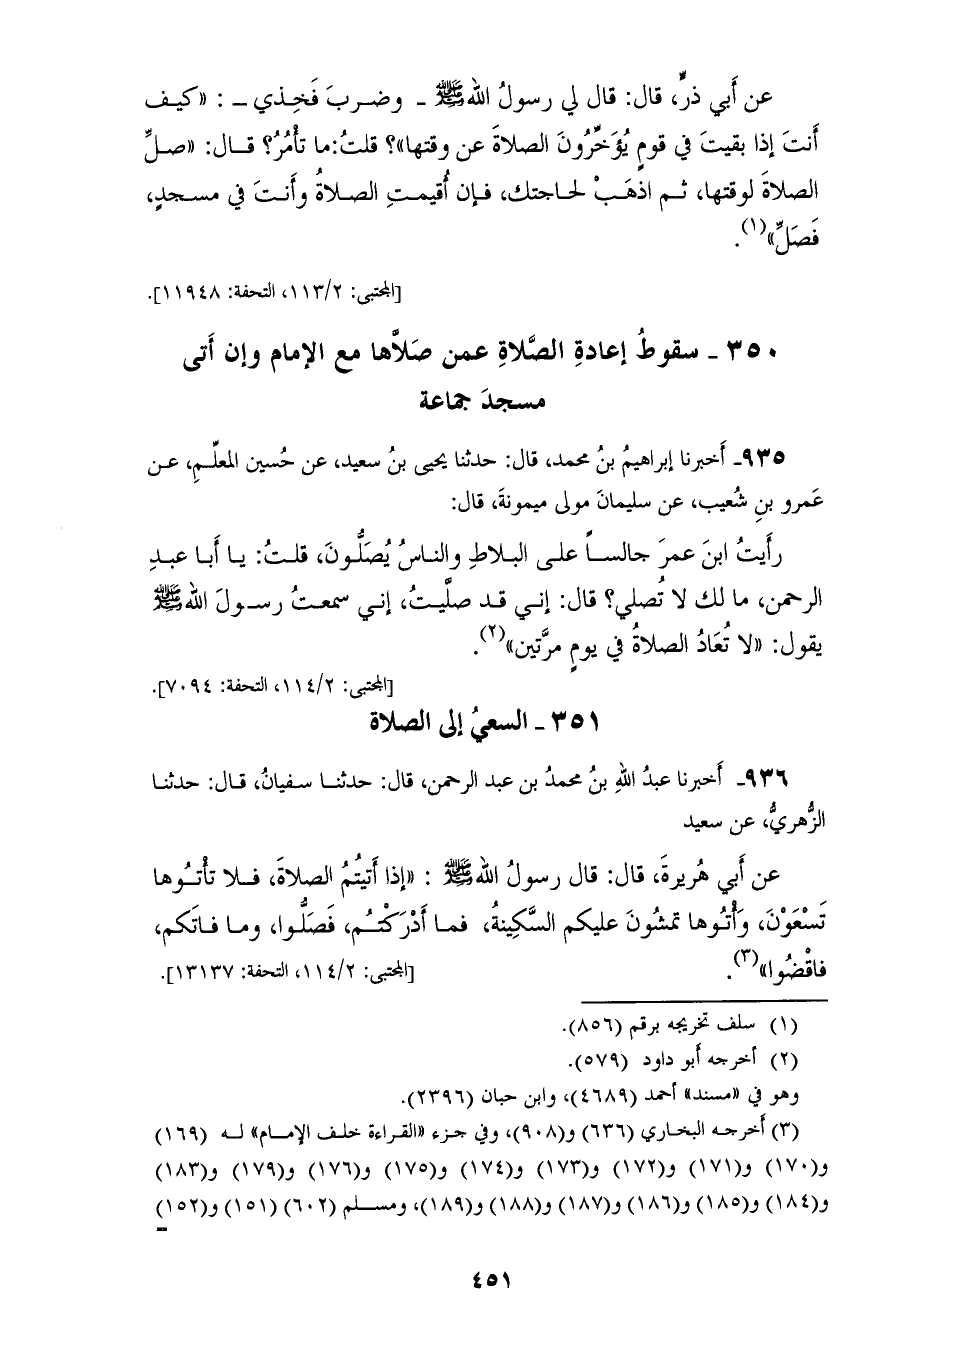 عن أَبي ذرٍّ، قال: قال لي رسولُ اللهﷺ ـ وضربَ فَخِذي ـ : «كيف
أَنتَ إذا بقيتَ في قومٍ يُؤَخِّرُونَ الصلاةَ عن وقتها»؟ قلتُ:ما تأْمُرُ؟ قال: «صلِّ
الصلاةَ لوقتها، ثم اذهَبْ لحاجتك، فإن أُقيمتِ الصلاةُ وأَنتَ في مسجدٍ،
فَصَلِّ»(١).
[المجتبى: ١١٣/٢، التحفة: ١١٩٤٨].
٣٥٠ ـ سقوطُ إعادةِ الصَّلاةِ عمن صَلاَّها مع الإمام وإن أَتى
مسجدَ جماعة
٩٣٥ـ أَخبرنا إبراهيمُ بنُ محمد، قال: حدثنا يحيى بنُ سعيد، عن حُسين المعلِّم، عن
عَمرو بنِ شُعيب، عن سليمانَ مولى ميمونةَ، قال:
رأَيتُ ابنَ عمرَ جالساً على البلاطِ والناسُ يُصَلُّونَ، قلتُ: يا أَبا عبدِ
الرحمن، ما لك لا تُصلي؟ قال: إني قد صلَّيتُ، إني سمعتُ رسولَ اللهﷺ
يقول: «لا تُعَادُ الصلاةُ في يومٍ مرَّتين»(٢).
[المجتبى: ١١٤/٢، التحفة: ٧٠٩٤].
٣٥١ ـ السعيُ إلى الصلاة
٩٣٦ـ أَخبرنا عبدُ اللهِ بنُ محمدُ بن عبد الرحمن، قال: حدثنا سفيانُ، قال: حدثنا
الزُّهريُّ، عن سعيد
عن أَبي هُريرةَ، قال: قال رسولُ اللهﷺ : «إذا أَتيتُمُ الصلاةَ، فلا تأْتُوها
تَسْعَوْنَ، وَأْتُوها تمشُونَ عليكم السَّكِينةُ، فما أَدْرَكْتُم، فَصَلُّوا، وما فاتَكم،
فاقْضُوا»(٣). [المجتبى: ١١٤/٢، التحفة: ١٣١٣٧].
(١) سلف تخريجه برقم (٨٥٦).
(٢) أخرجه أَبو داود (٥٧٩).
وهو في «مسند» أحمد (٤٦٨٩)، وابن حبان (٢٣٩٦).
(٣) أَخرجه البخاري (٦٣٦) و(٩٠٨)، وفي جزء «القراءة خلف الإمام» له (١٦٩)
و(١٧٠) و(١٧١) و(١٧٢) و(١٧٣) و(١٧٤) و(١٧٥) و(١٧٦) و(١٧٩) و(١٨٣)
و(١٨٤) و(١٨٥) و(١٨٦) و(١٨٧) و(١٨٨) و(١٨٩)، ومسلم (٦٠٢) (١٥١) و(١٥٢)
=
٤٥١